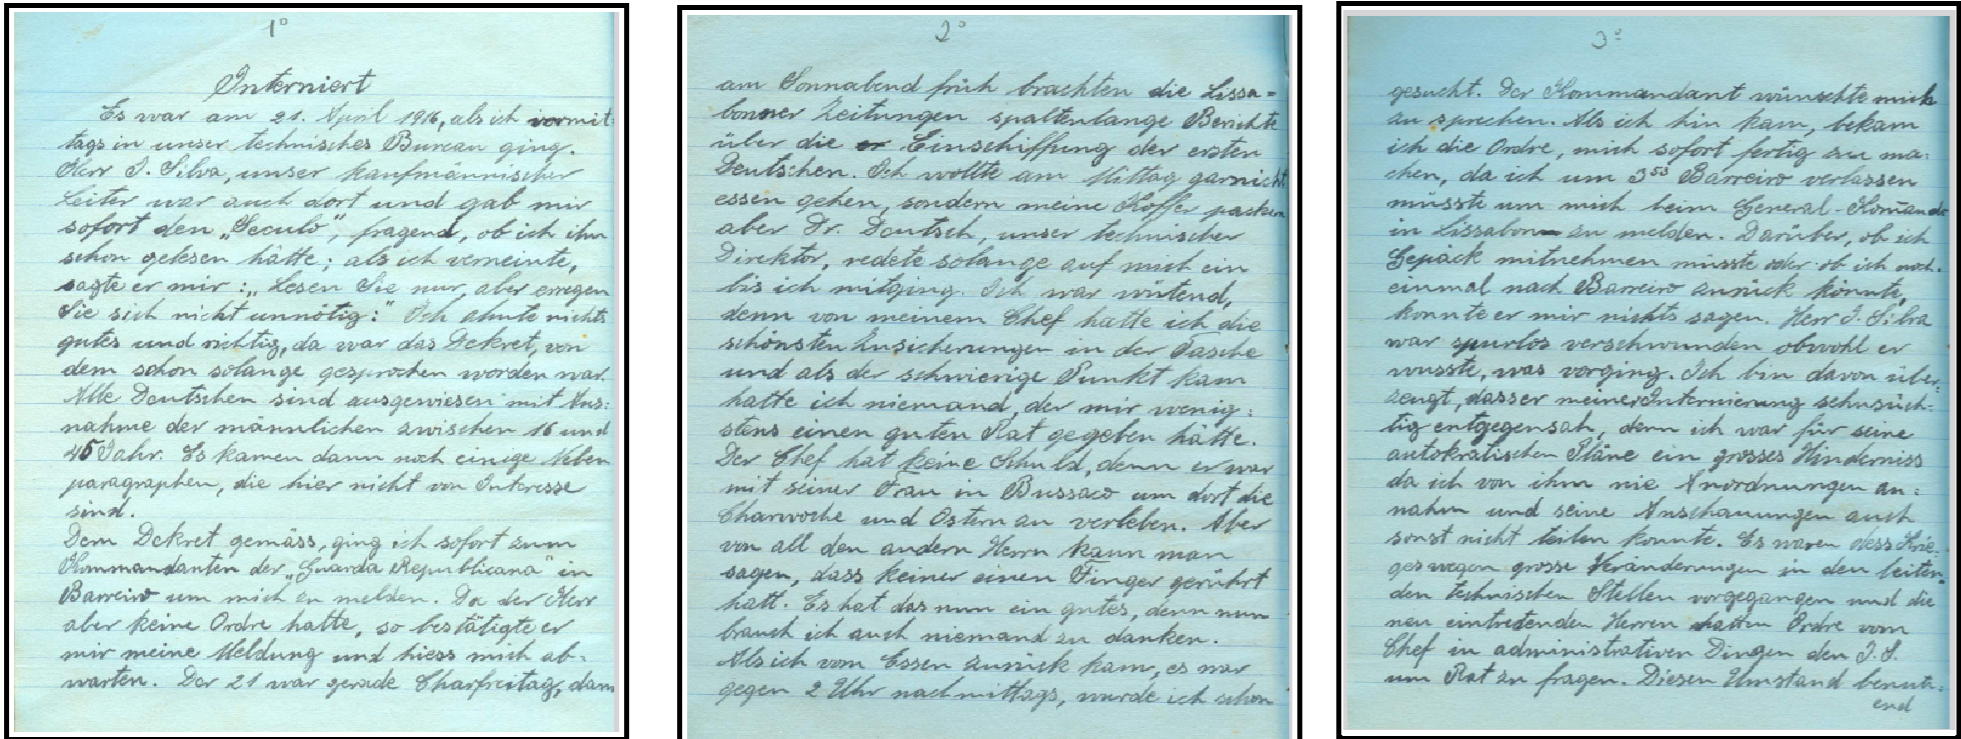 1°
Interniert
Es war am 21. April 1916, als ich vormit-
tags in unser technisches Bureau ging.
Herr J. Silva, unser kaufmännischer
Leiter war auch dort und gab mir
sofort den „Seculo“, fragend, ob ich ihn
schon gelesen hätte; als ich verneinte,
sagte er mir: „Lesen Sie nur, aber erregen
Sie sich nicht unnötig:“ Ich ahnte nichts
gutes und richtig, da war das Dekret, von
dem schon solange gesprochen worden war.
Alle Deutschen sind ausgewiesen mit Aus:
nahme der männlichen zwischen 16 und
45 Jahr. Es kamen dann noch einige Neben
paragraphen, die hier nicht von Interesse
sind.
Dem Dekret gemäss, ging ich sofort zum
Kommandanten der „Guarda Republicana“ in
Barreiro um mich zu melden. Da der Herr
aber keine Ordre hatte, so bestätigte er
mir meine Meldung und hiess mich ab-
warten. Der 21 war gerade Charfreitag, dann
2°
am Sonnabend früh brachten die Lissa=
bonner Zeitungen spaltenlange Berichte
über die Einschiffung der ersten
Deutschen. Ich wollte am Mittag garnicht
essen gehen, sondern meine Koffer packen
aber Dr. Deutsch, unser technischer
Direktor, redete solange auf mich ein
bis ich mitging. Ich war wütend,
denn von meinem Chef hatte ich die
schönsten Zusicherungen in der Tasche
und als der schwierige Punkt kam
hatte ich niemand, der mir wenig:
stens einen guten Rat gegeben hätte.
Der Chef hat keine Schuld, denn er war
mit seiner Frau in Bussaco um dort die
Charwoche und Ostern zu verleben. Aber
von all den andern Herrn kann man
sagen, dass keiner einen Finger gerührt
hatt. Es hat das nun ein gutes, denn nun
brauch ich auch niemand zu danken.
Als ich vom Essen zurück kam, es war
gegen 2 Uhr nachmittags, wurde ich schon
3°
gesucht. Der Kommandant wünschte mich
zu sprechen. Als ich hin kam, bekam
ich die Ordre, mich sofort fertig zu ma:
chen, da ich um 3⁵⁵ Barreiro verlassen
müsste um mich beim General-Komando
in Lissabon zu melden. Darüber, ob ich
Gepäck mitnehmen müsste oder ob ich noch.
einmal nach Barreiro zurück könnte,
konnte er mir nichts sagen. Herr J. Silva
war spurlos verschwunden obwohl er
wusste, was vorging. Ich bin davon über:
zeugt, dass er meiner Internierung sehnsüch-
tig entgegensah, denn ich war für seine
autokratischen Pläne ein grosses Hinderniss
da ich von ihm nie Anordnungen an:
nahm und seine Anschauungen auch
sonst nicht teilen konnte. Es waren dess Krie-
ges wegen grosse Veränderungen in den leiten-
den technischen Stellen vorgegangen und die
neu eintretenden Herren hatten Ordre vom
Chef in administrativen Dingen den J. S.
um Rat zu fragen. Diesen Umstand benutz:
end